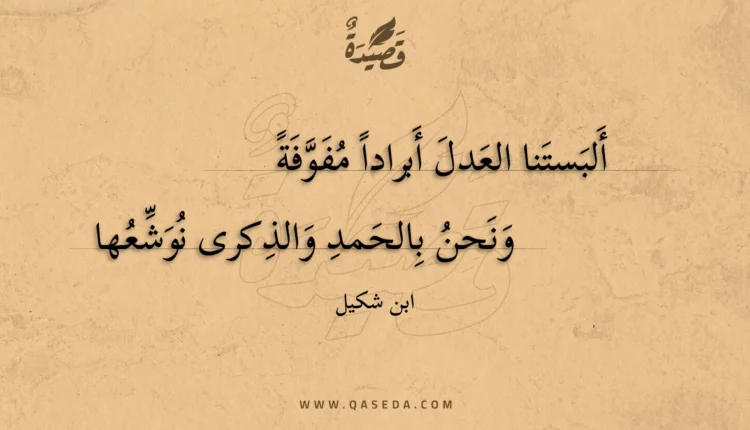 قَصِيْدَةٌ
أَلبَستَنا العَدلَ أَبراداً مُفَوَّفَةً
وَنَحنُ بِالحَمدِ وَالذِكرى نُوَشِّعُها
ابن شكيل
WWW.QASEDA.COM